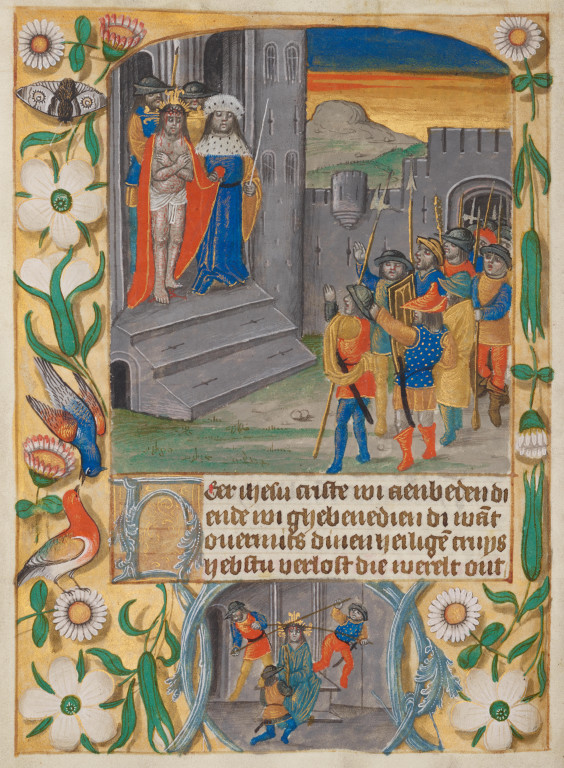 Heer ihesu criste wi aenbeden di
ende wi ghebenedien di wāt
overmits dinen heilighē cruys
hebstu verlost die werelt out